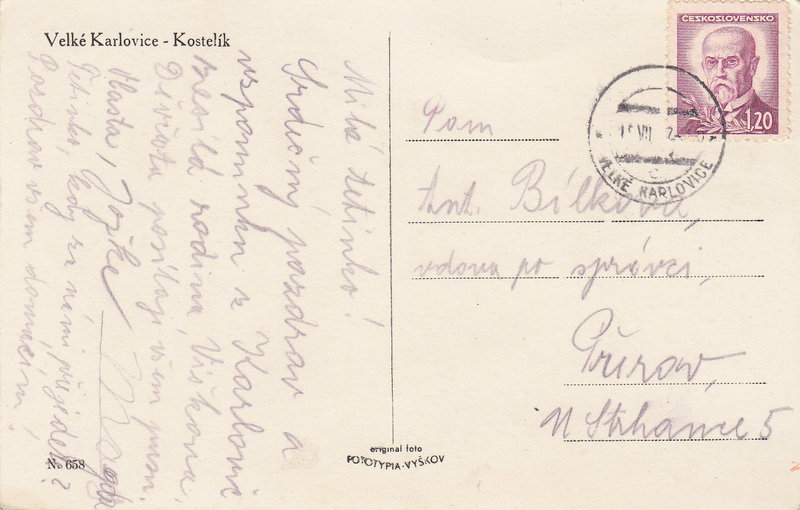 Velké Karlovice - Kostelík
Milá tetinko!
Srdečný pozdrav a
vzpomínku z Karlovic
rodina
Děvčata posílají všem pusu.
Vlasta, Joške
Tetinko, kdy za námi přijedete?
Pozdrav všem domácím!
N. 658
original foto
FOTOTYPIA-VYŠKOV
ČESKOSLOVENSKO
1,20
VII
VELKÉ KARLOVICE
Paní
Ant. Bílková,
vdova po správci,
Přerov,
N Strhanec 5